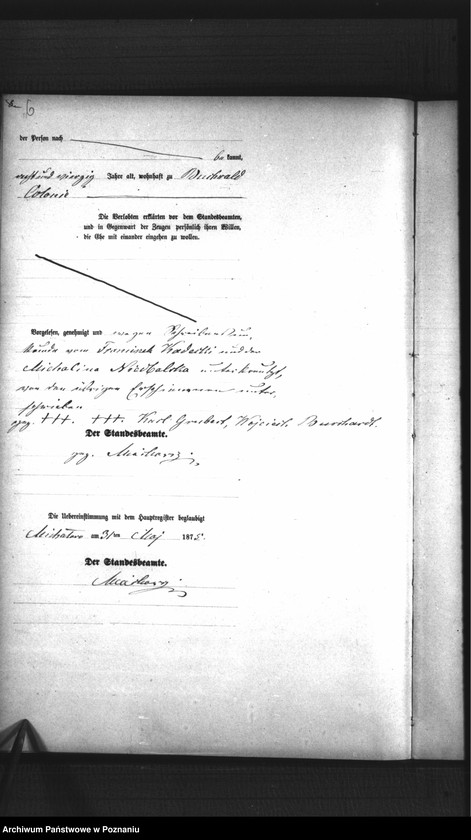 6
der Person nach
be kannt,
acht und vierzig Jahre alt, wohnhaft zu Buchwald
Colonie
Die Verlobten erklärten vor dem Standesbeamten,
und in Gegenwart der Zeugen persönlich ihren Willen,
die Ehe mit einander eingehen zu wollen.
Vorgelesen, genehmigt und wegen Schreibensun-
kunde vom Franciszek und der
Michalina Niedbalska unterkreutzt,
von den übrigen Erschienenen unter-
schrieben
gez. +++. +++. Karl Grubert, Wojciech Burchardt.
Der Standesbeamte.
gez.
Die Uebereinstimmung mit dem Hauptregister beglaubigt
am 31ten Maj 1875
Der Standesbeamte.
Archiwum Państwowe w Poznaniu